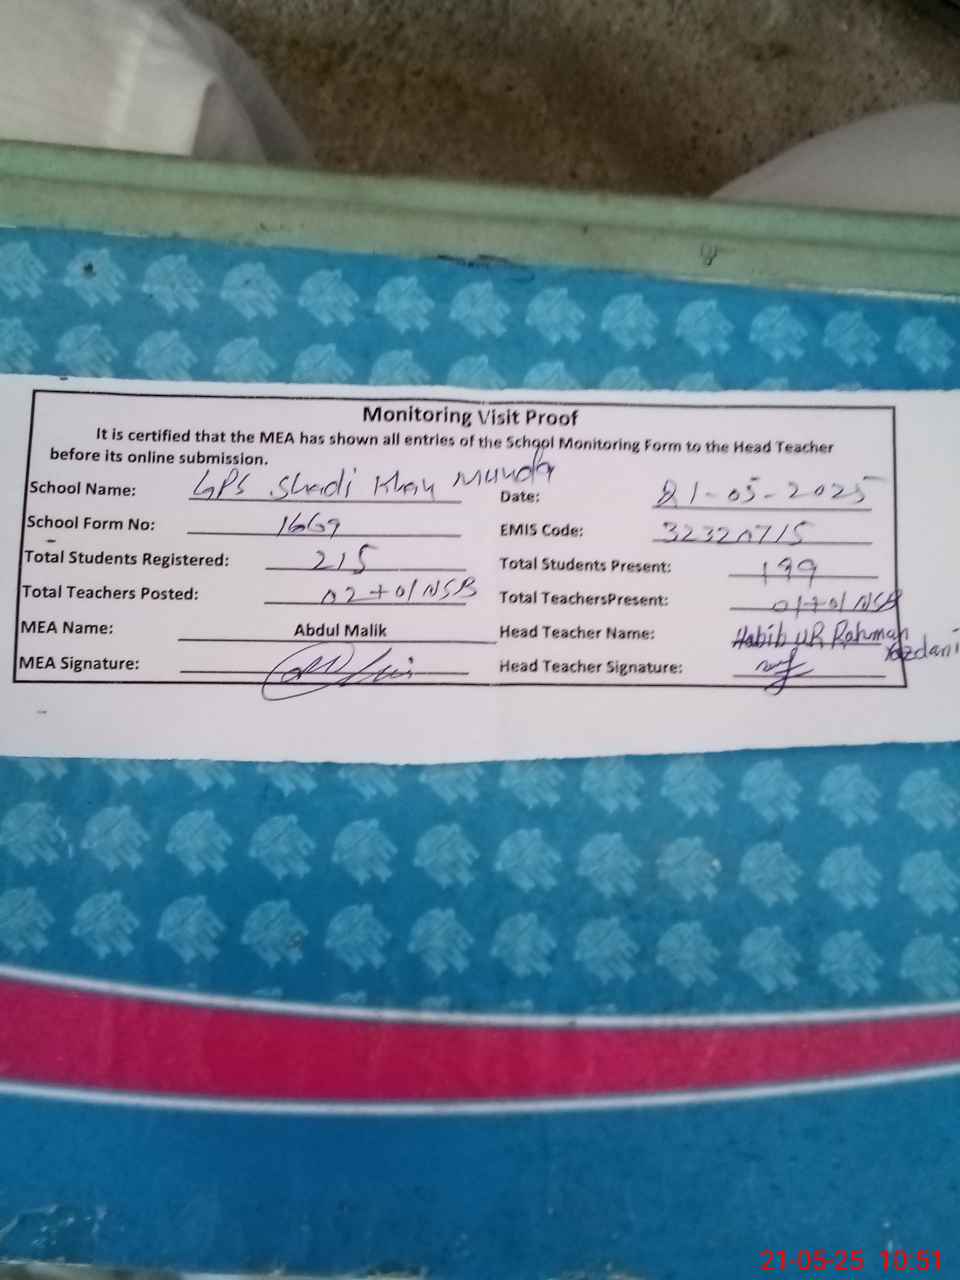 Monitoring Visit Proof
It is certified that the MEA has shown all entries of the School Monitoring Form to the Head Teacher
before its online submission.
School Name: GPS Shadi Khan Munda Date: 21-05-2025
School Form No: 1669 EMIS Code: 32320715
Total Students Registered: 215 Total Students Present: 199
Total Teachers Posted: 02+01 NSB Total TeachersPresent: 01+01 NSB
MEA Name: Abdul Malik Head Teacher Name: Habib UR Rahman Yazdani
MEA Signature: Head Teacher Signature:
21-05-25 10:51